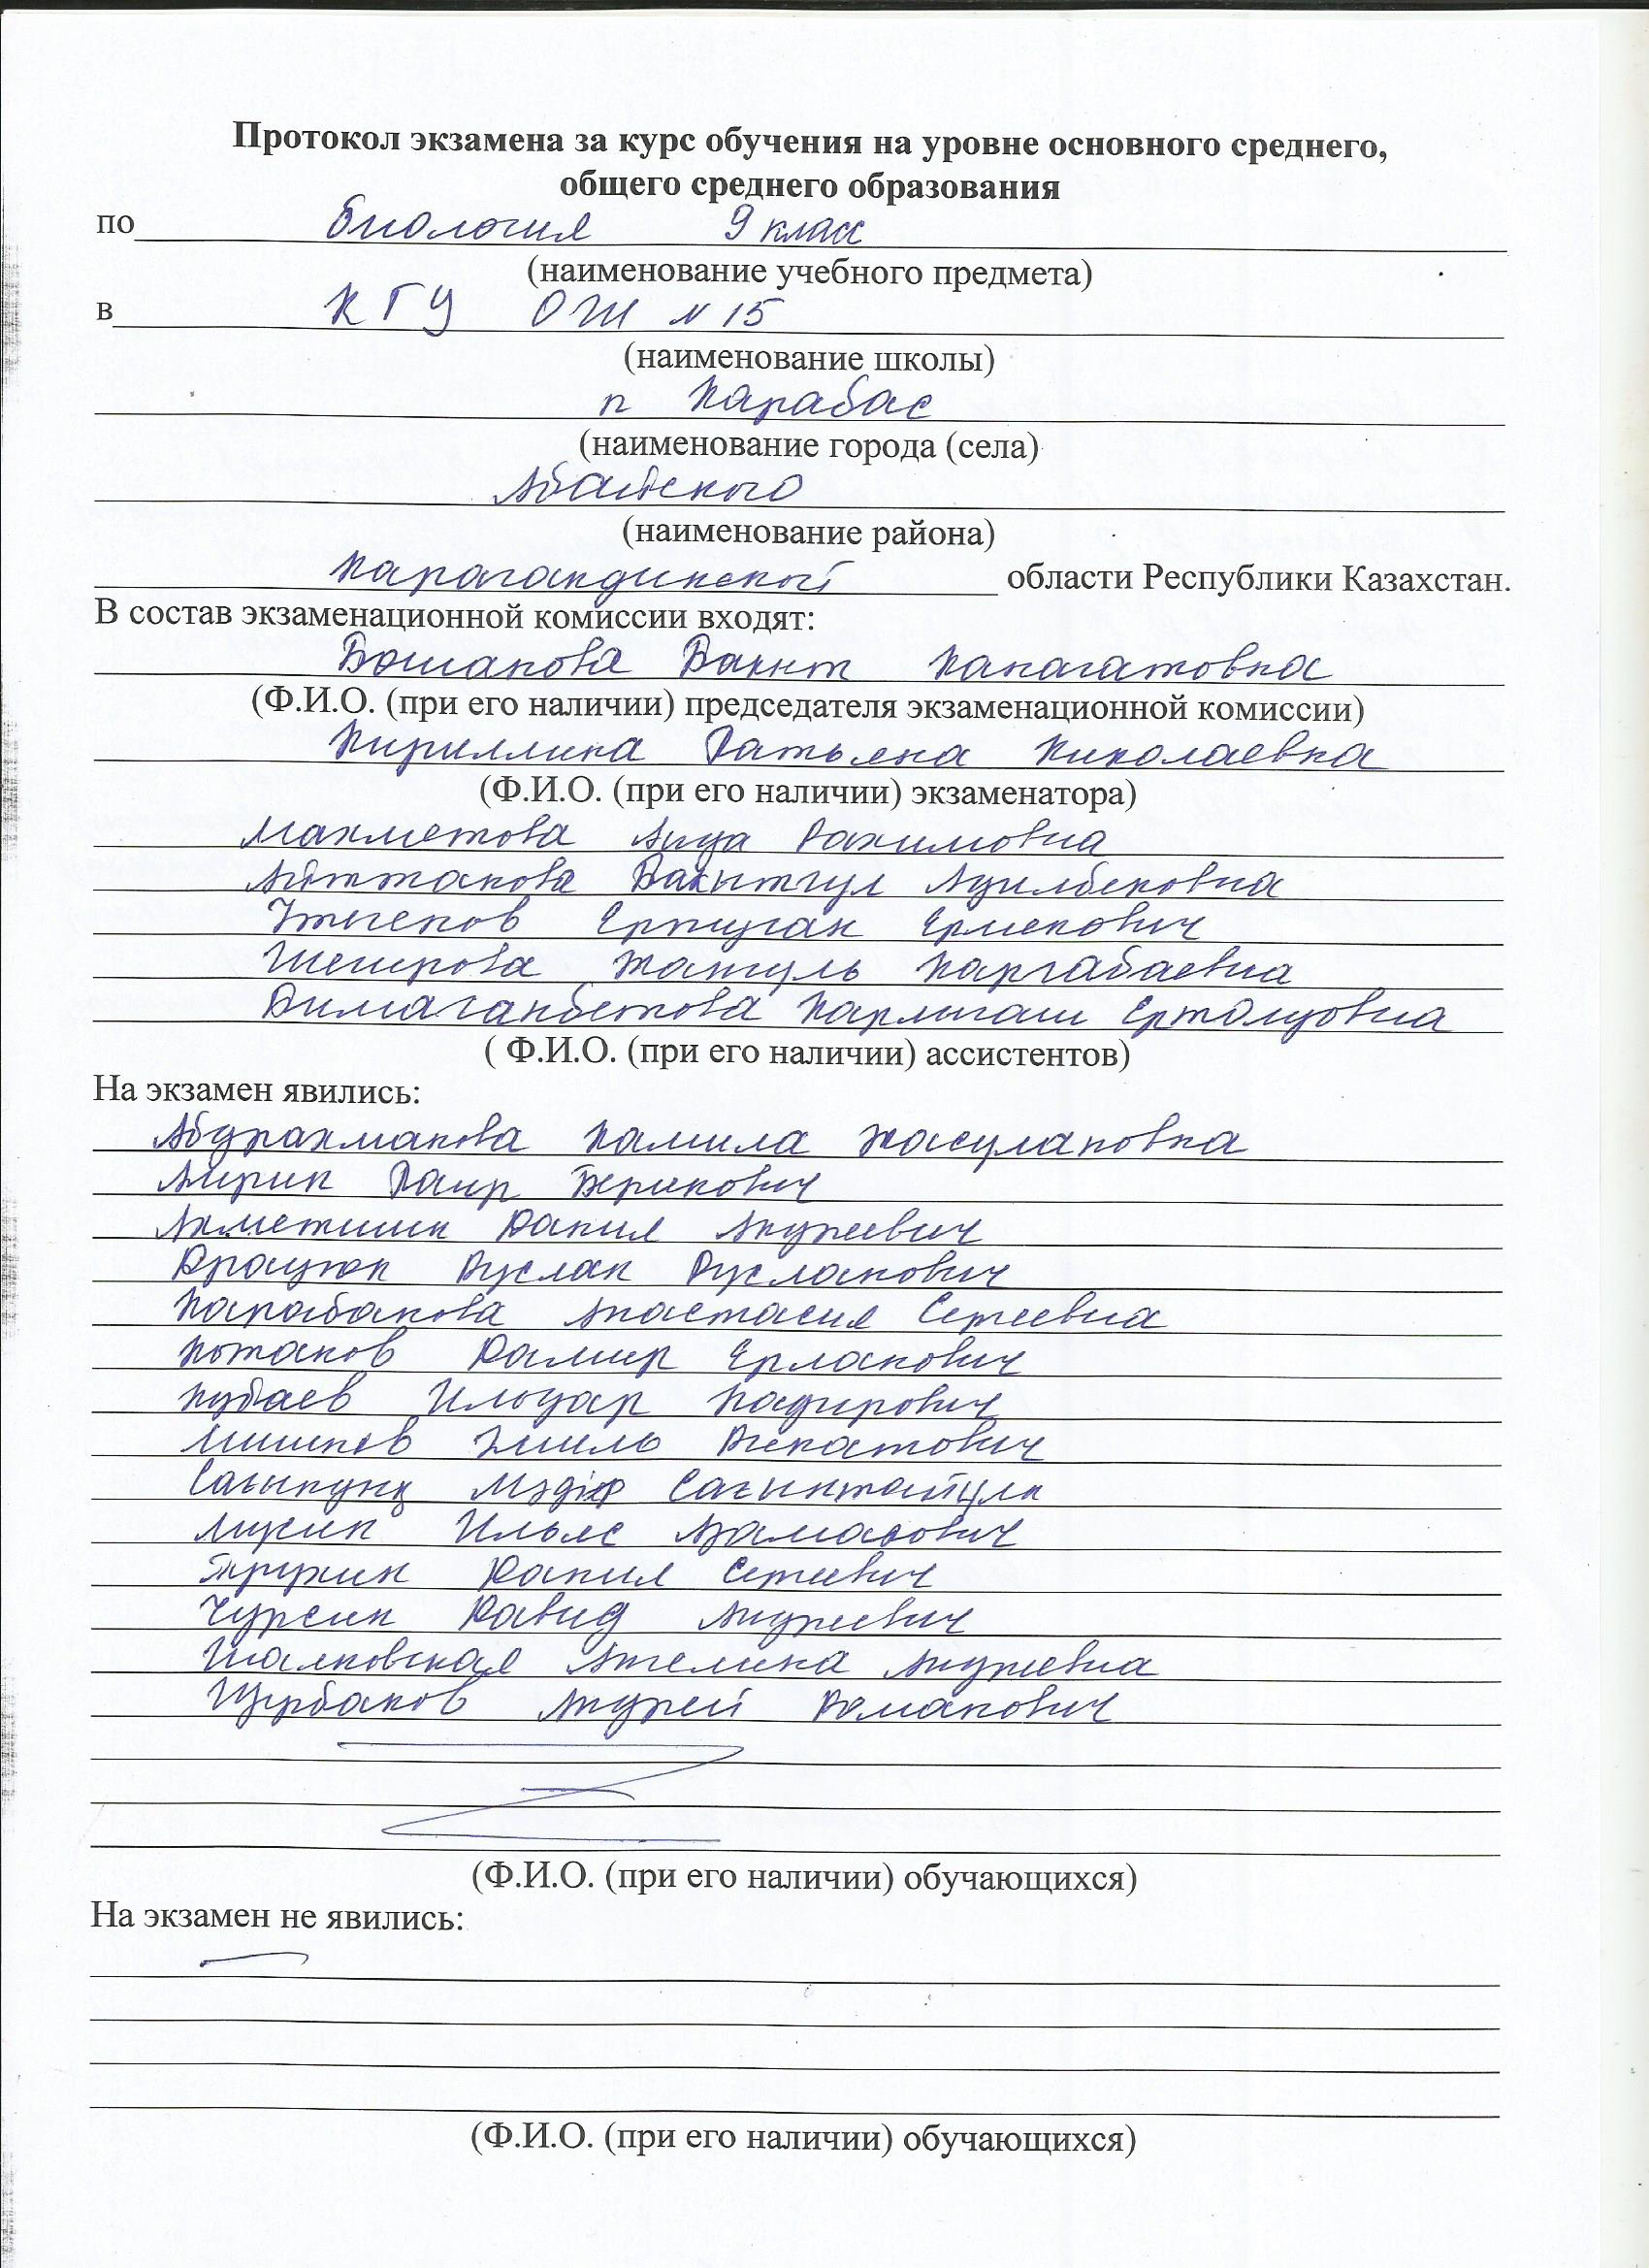 Протокол экзамена за курс обучения на уровне основного среднего,
общего среднего образования
по биология 9 класс
(наименование учебного предмета)
в КГУ ОШ № 15
(наименование школы)
п Карабас
(наименование города (села)
Абайского
(наименование района)
Карагандинской области Республики Казахстан.
В состав экзаменационной комиссии входят:
Бошанова Бакыт Канагатовна
(Ф.И.О. (при его наличии) председателя экзаменационной комиссии)
Кириллина Татьяна Николаевна
(Ф.И.О. (при его наличии) экзаменатора)
Махметова Аида Рахимовна
Айтжанова Бакытгул Адилбековна
Ермекович
Шешрова Жангуль Каргабаевна
Димаганбетова Карлыгаш
( Ф.И.О. (при его наличии) ассистентов)
На экзамен явились:
Абдрахманова Камила Жасулановна
Таир Берикович
Ахметшин Данил Андреевич
Драцюк Руслан Русланович
Карабанова Анастасия Сергеевна
Кожанов Дамир Ерланович
Кубаев Ильдар Кадирович
Эмиль Ринатович
Мәдияр
Ильяс
Трухин Данил Сергеевич
Чурсин Давид Андреевич
Шалковская Ангелина Андреевна
Щербаков Андрей Романович
(Ф.И.О. (при его наличии) обучающихся)
На экзамен не явились:
(Ф.И.О. (при его наличии) обучающихся)